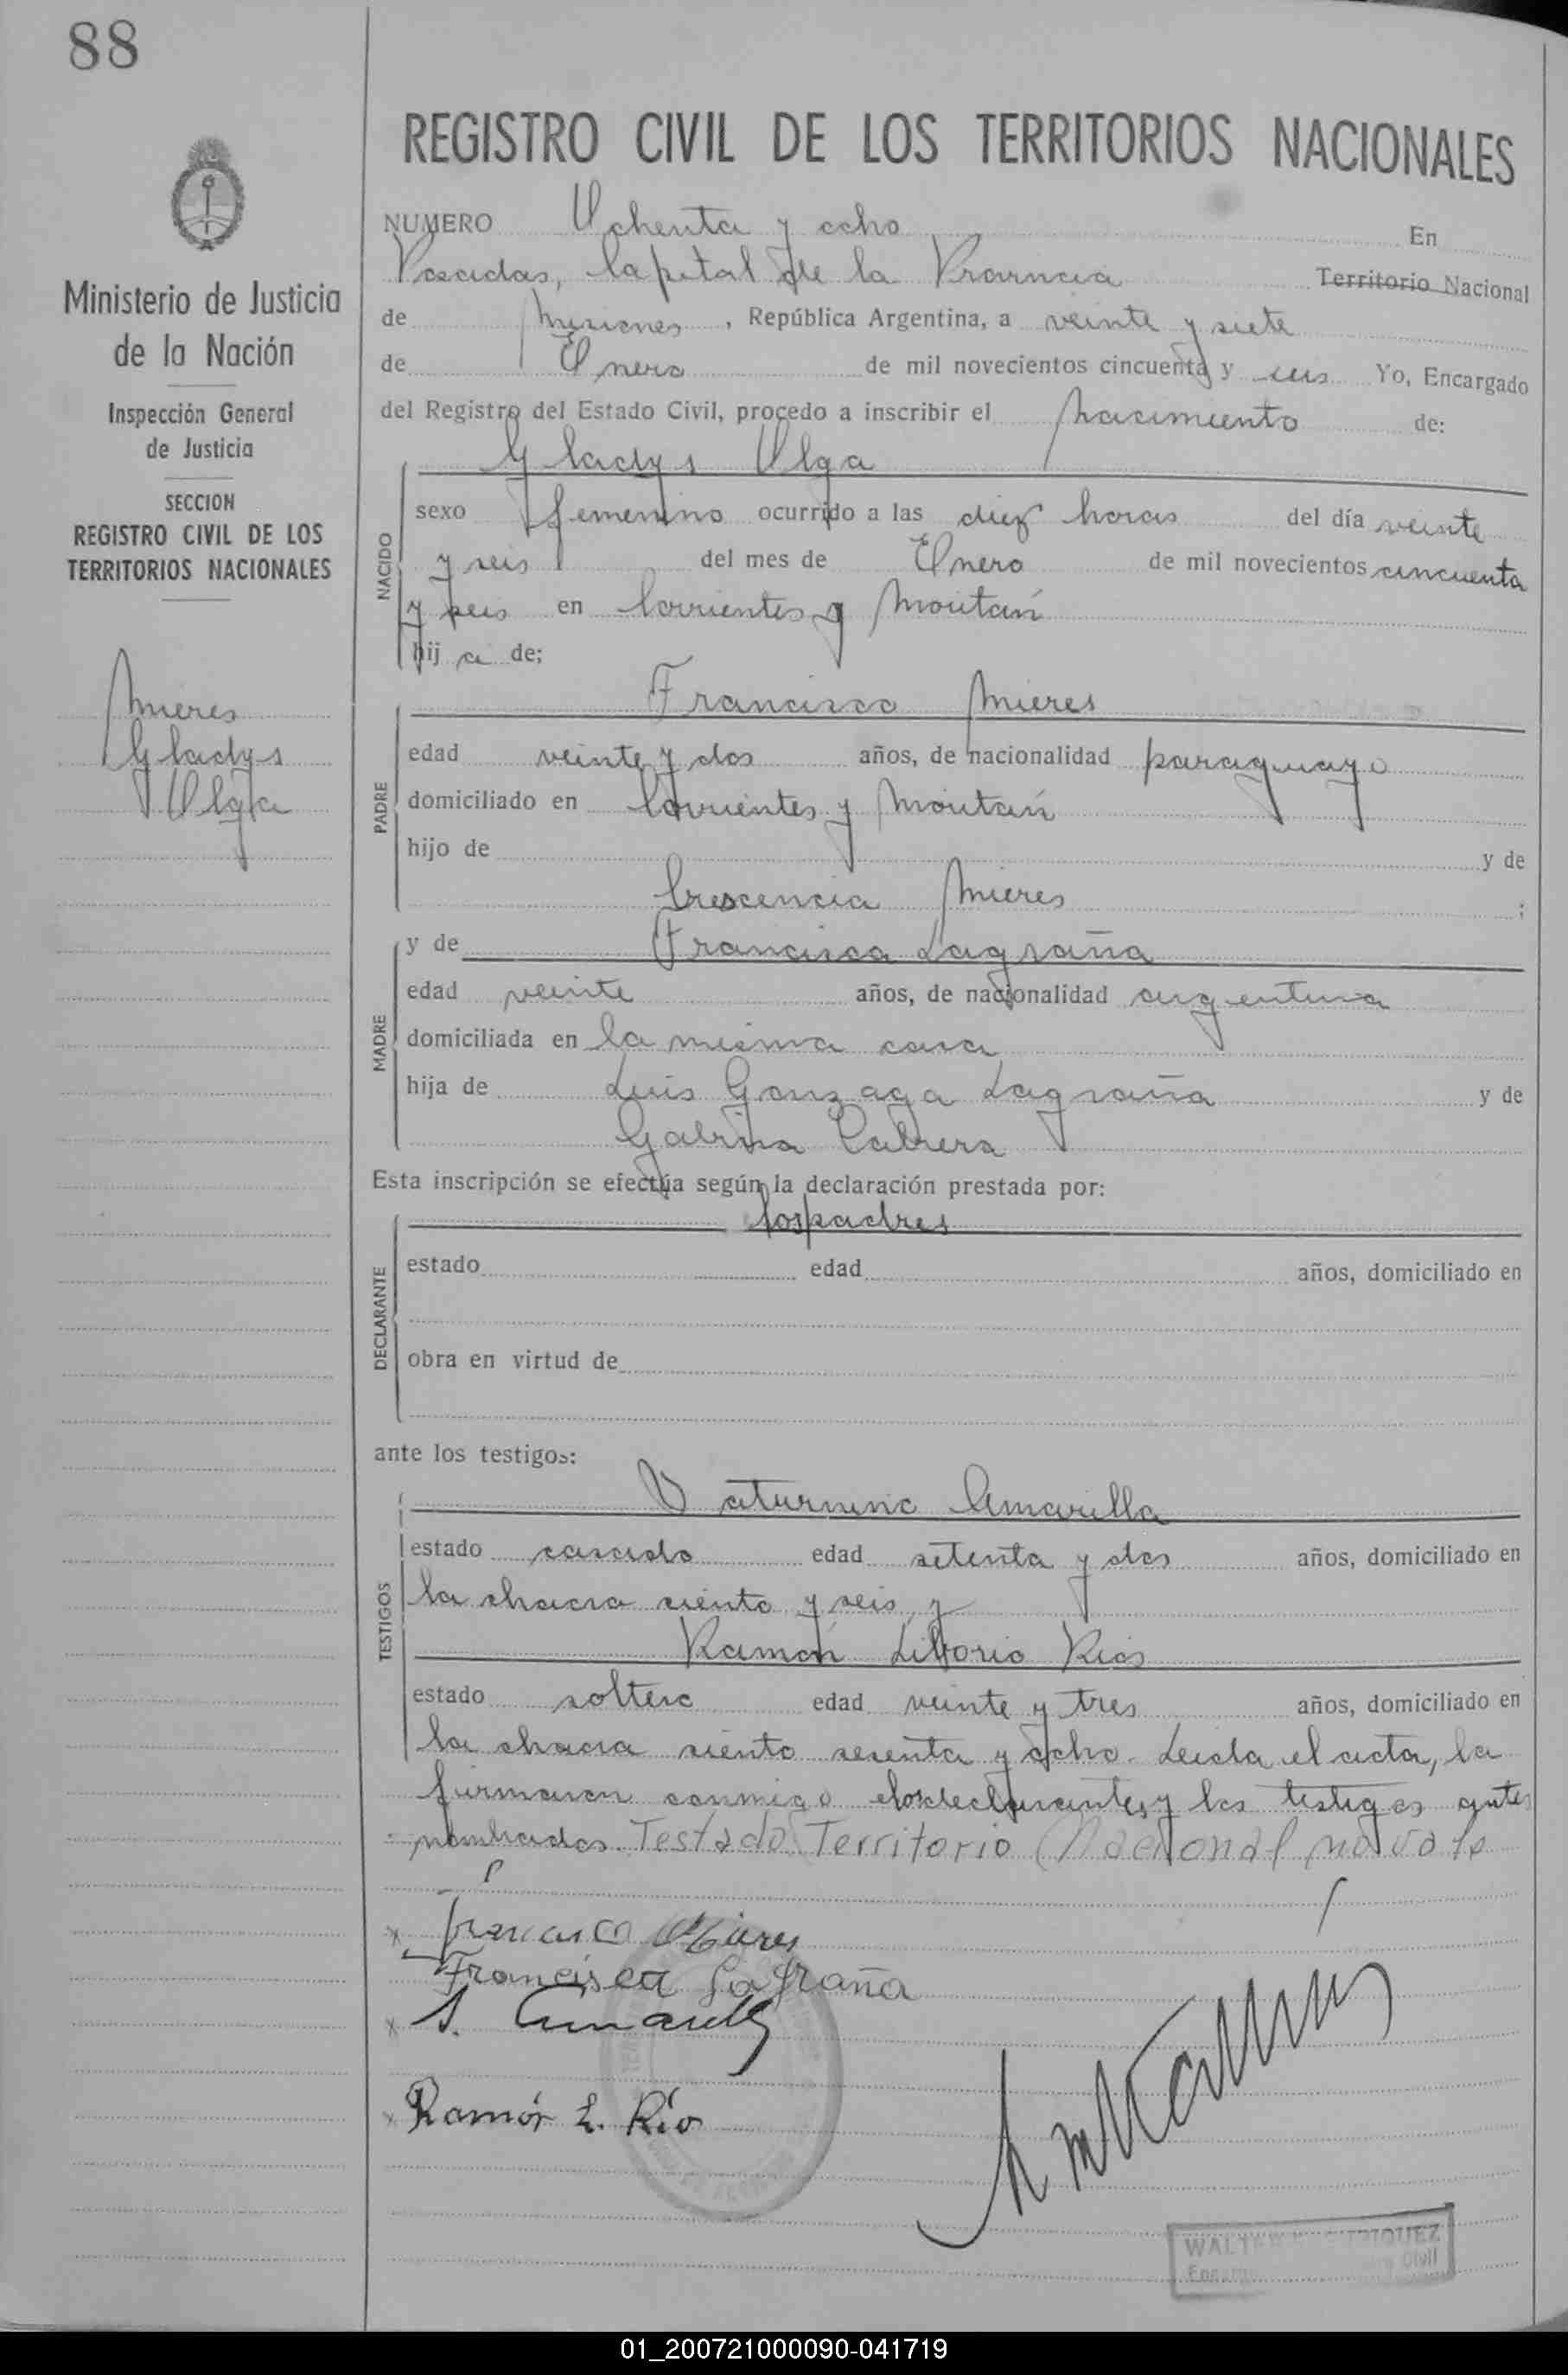 88
Ministerio de Justicia
de la Nación
Inspección General
de Justicia
SECCION
REGISTRO CIVIL DE LOS
TERRITORIOS NACIONALES
Mieres
Gladys
Olga
REGISTRO CIVIL DE LOS TERRITORIOS NACIONALES
NUMERO Ochenta y ocho En
Posadas, Capital de la Provincia Territorio Nacional
de Misiones, República Argentina, a veinte y siete
de Enero de mil novecientos cincuenta y seis Yo, Encargado
del Registro del Estado Civil, procedo a inscribir el nacimiento de:
Gladys Olga
NACIDO
sexo femenino ocurrido a las diez horas del día veinte
y seis del mes de Enero de mil novecientos cincuenta
y seis en Corrientes y Moután
hij a de;
Francisco Mieres
PADRE
edad veinte y dos años, de nacionalidad paraguayo
domiciliado en Corrientes y Moután
hijo de y de
Crescencia Mieres ;
y de Francisca Lagraña
MADRE
edad veinte años, de nacionalidad argentina
domiciliada en la misma casa
hija de Luis Gonzaga Lagraña y de
Gabina Cabrera
Esta inscripción se efectúa según la declaración prestada por:
los padres
DECLARANTE
estado edad años, domiciliado en
obra en virtud de
ante los testigos:
Saturnino Amarilla
TESTIGOS
estado casado edad setenta y dos años, domiciliado en
la chacra ciento y seis y
Ramón Liborio Rios
estado soltero edad veinte y tres años, domiciliado en
la chacra ciento sesenta y ocho. Leida el acta, la
firmaron conmigo los declarantes y los testigos antes
nombrados. Testado Territorio Nacional no vale
Francisco Mieres
Francisca Lagraña
S. Amarilla
Ramón L. Río
WALTER
01_200721000090-041719